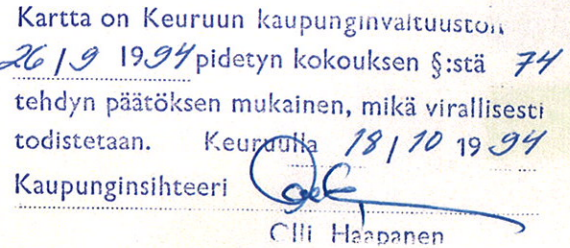 Kartta on Keuruun kaupunginvaltuuston
26/9 1994 pidetyn kokouksen §:stä 74
tehdyn päätöksen mukainen, mikä virallisesti
todistetaan. Keuruulla 18/10 1994
Kaupunginsihteeri
Olli Haapanen